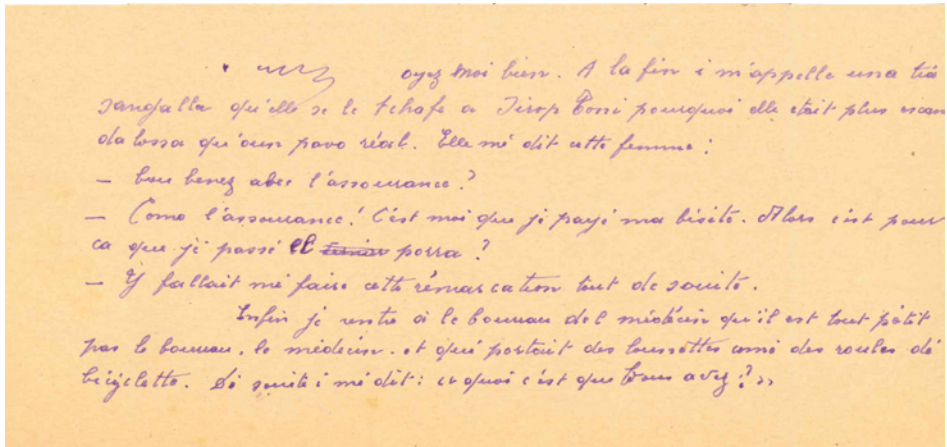 oyez moi bien. A la fin i m'appelle una tia
sangalla qu'elle se le tchafe a Jirop Tossi pourquoi elle était plus escan
dalossa qu'oun pavo réal. Elle mé dit cette femme :
— bou benez abec l'assourance ?
— Como l'assourance ! C'est moi que jé payé ma bisité. Alors c'est pour
ca que jé passé el porra ?
— Y fallait mé faire cette rémarcation tout de souité.
Enfin jé rentre à le boureau del médécin qu'il est tout pétit
pas le boureau, le médecin. et qué portait des loussettes comé des roules dé
bicyclette. Dé souite i mé dit : ce quoi c'est que bous avez ? »